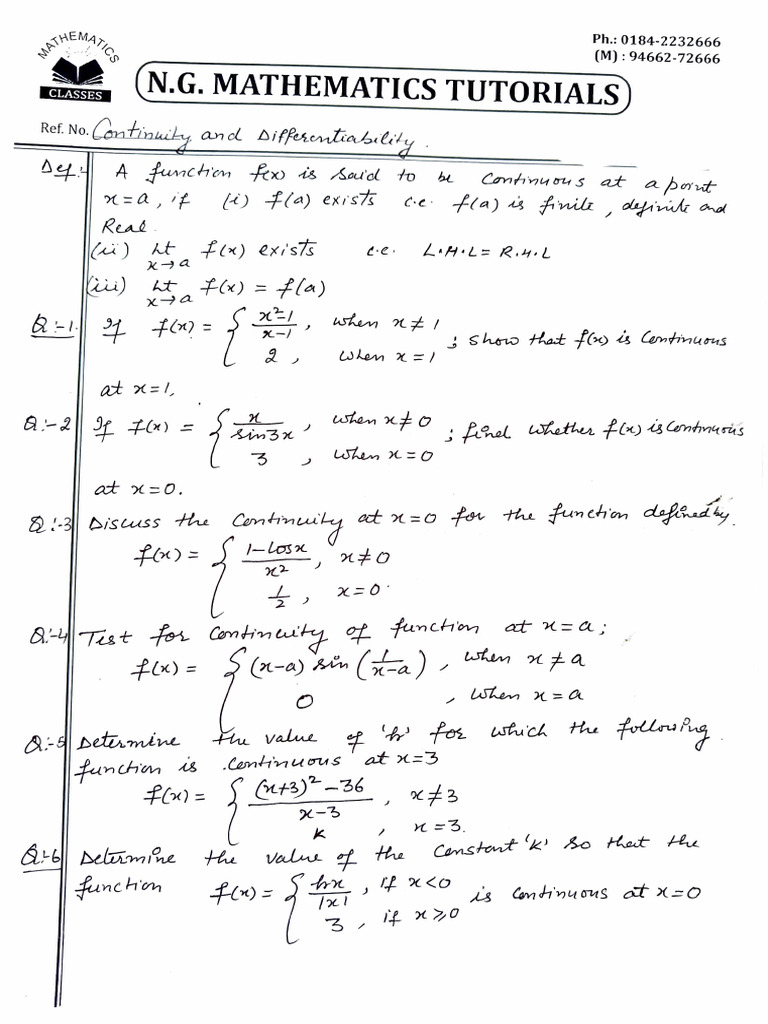 MATHEMATICS
CLASSES
Ph.: 0184-2232666
(M) : 94662-72666
N.G. MATHEMATICS TUTORIALS
Ref. No. Continuity and Differentiability.
Def:- A function f(x) is said to be continuous at a point
x=a, if (i) f(a) exists i.e. f(a) is finite, definite and
Real.
(ii) Lt x→a f(x) exists i.e. L.H.L = R.H.L
(iii) Lt x→a f(x) = f(a)
Q:-1. If f(x) = { (x²-1)/(x-1), when x≠1
2, when x=1 ; show that f(x) is continuous
at x=1.
Q:-2 If f(x) = { x/sin3x, when x≠0
3, when x=0 ; find whether f(x) is continuous
at x=0.
Q:-3 Discuss the continuity at x=0 for the function defined by.
f(x) = { (1-cosx)/x², x≠0
1/2, x=0.
Q:-4 Test for continuity of function at x=a;
f(x) = { (x-a) sin (1/(x-a)), when x≠a
0, when x=a
Q:-5 Determine the value of 'k' for which the following
function is continuous at x=3
f(x) = { ((x+3)²-36)/(x-3), x≠3
k, x=3.
Q:-6 Determine the value of the constant 'k' so that the
function f(x) = { kx/|x|, if x<0
3, if x≥0 is continuous at x=0